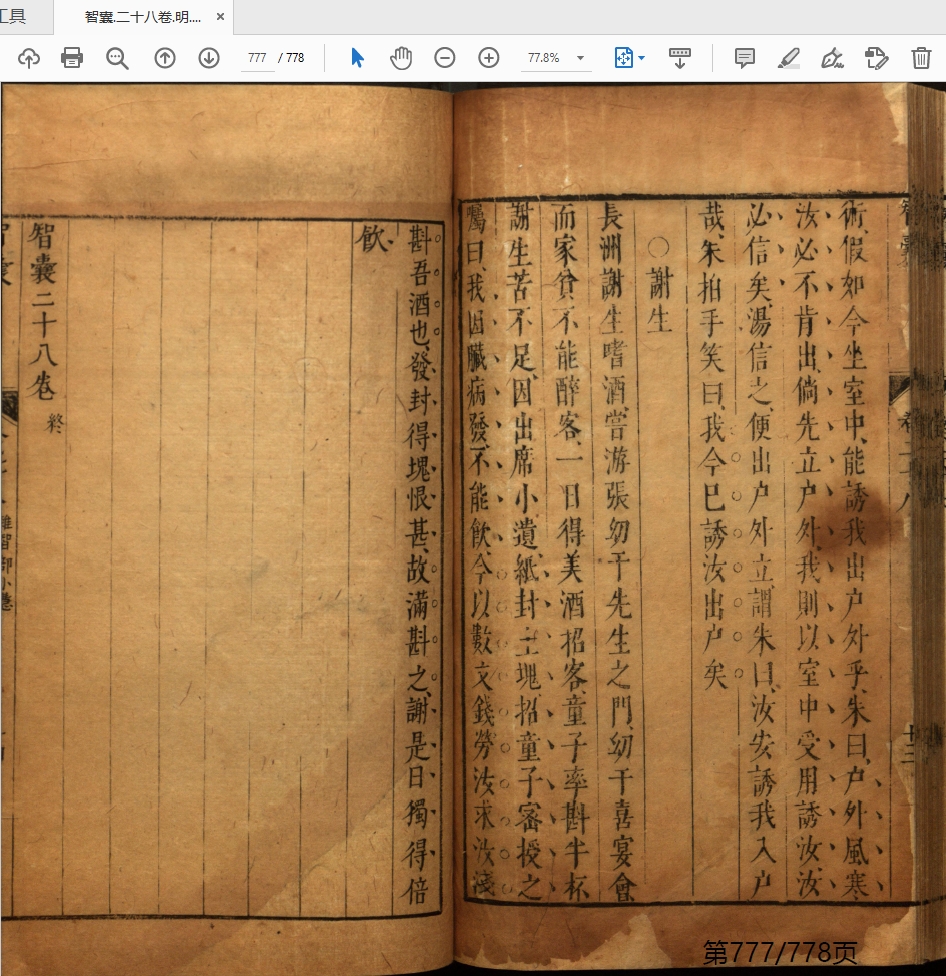 工具
智囊.二十八卷.明....
×
777 / 778
77.8%
術、假如今坐室中、能誘我出户外乎、朱曰、户外風寒、
汝必不肯出、倘先立户外、我則以室中受用誘汝、汝
必信矣、湯信之、便出户外立、謂朱曰、汝安誘我入户
哉、朱拍手笑曰、我今已誘汝出户矣
○謝生
長洲謝生嗜酒、嘗游張幼于先生之門、幼于喜宴會
而家貧不能醉客、一日得美酒招客、童子率斟半杯
謝生苦不足、因出席小遺、紙封土塊、招童子密授之
囑曰、我因臟病發、不能飲、今以數文錢勞汝求汝淺
斟吾酒也、發封得塊恨甚、故滿斟之、謝是日獨得倍
飲、
智囊二十八卷 終
第777/778页